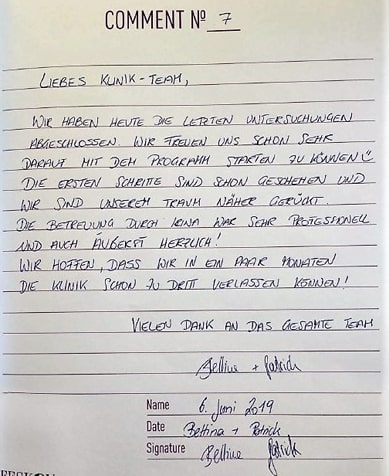 COMMENT Nº 7
LIEBES KLINIK-TEAM,
WIR HABEN HEUTE DIE LETZTEN UNTERSUCHUNGEN
ABGESCHLOSSEN. WIR FREUEN UNS SCHON SEHR
DARAUF MIT DEM PROGRAMM STARTEN ZU KÖNNEN
DIE ERSTEN SCHRITTE SIND SCHON GESCHEHEN UND
WIR SIND UNSEREM TRAUM NÄHER GERÜCKT.
DIE BETREUUNG DURCH WAR SEHR PROFESSIONELL
UND AUCH ÄUßERST HERZLICH!
WIR HOFFEN, DASS WIR IN EIN PAAR MONATEN
DIE KLINIK SCHON ZU DRITT VERLASSEN KÖNNEN!
VIELEN DANK AN DAS GESAMTE TEAM
Bettina + Patrick
Name 6. Juni 2019
Date Bettina + Patrick
Signature Bettina Patrick